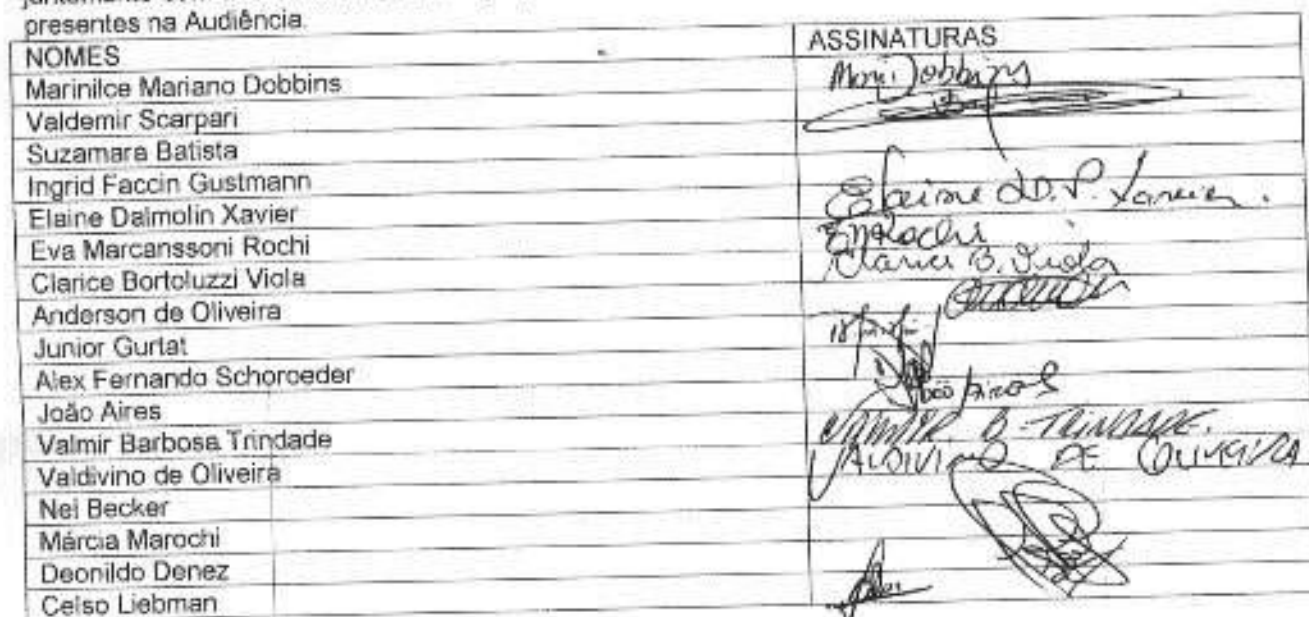 presentes na Audiência.
NOMES ASSINATURAS
Marinilce Mariano Dobbins Mari Dobbins
Valdemir Scarpari
Suzamara Batista
Ingrid Faccin Gustmann
Elaine Dalmolin Xavier Elaine D. P. Xavier.
Eva Marcanssoni Rochi EMRochi
Clarice Bortoluzzi Viola Clarice B. Viola
Anderson de Oliveira
Junior Gurtat
Alex Fernando Schoroeder
João Aires João Aires
Valmir Barbosa Trindade VALMIR B. TRINDADE.
Valdivino de Oliveira VALDIVINO DE OLIVEIRA
Nei Becker
Márcia Marochi
Deonildo Denez
Celso Liebman